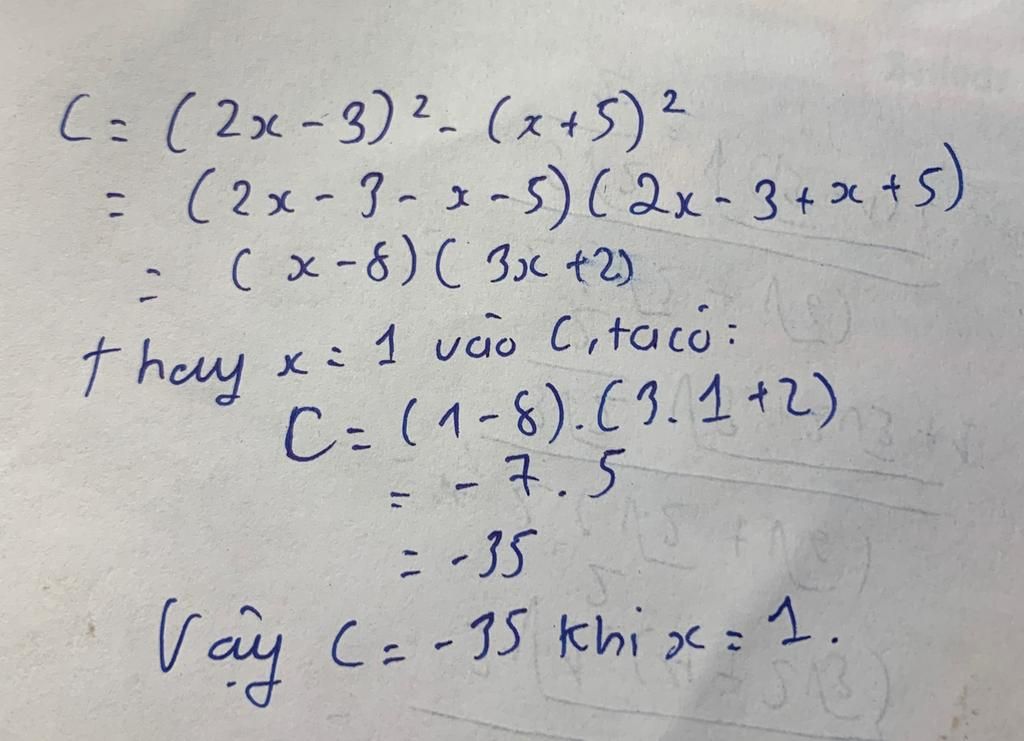 C = (2x - 3)² - (x + 5)²
= (2x - 3 - x - 5)(2x - 3 + x + 5)
= (x - 8)(3x + 2)
thay x = 1 vào C, ta có:
C = (1 - 8).(3.1 + 2)
= -7.5
= -35
Vậy C = -35 khi x = 1.